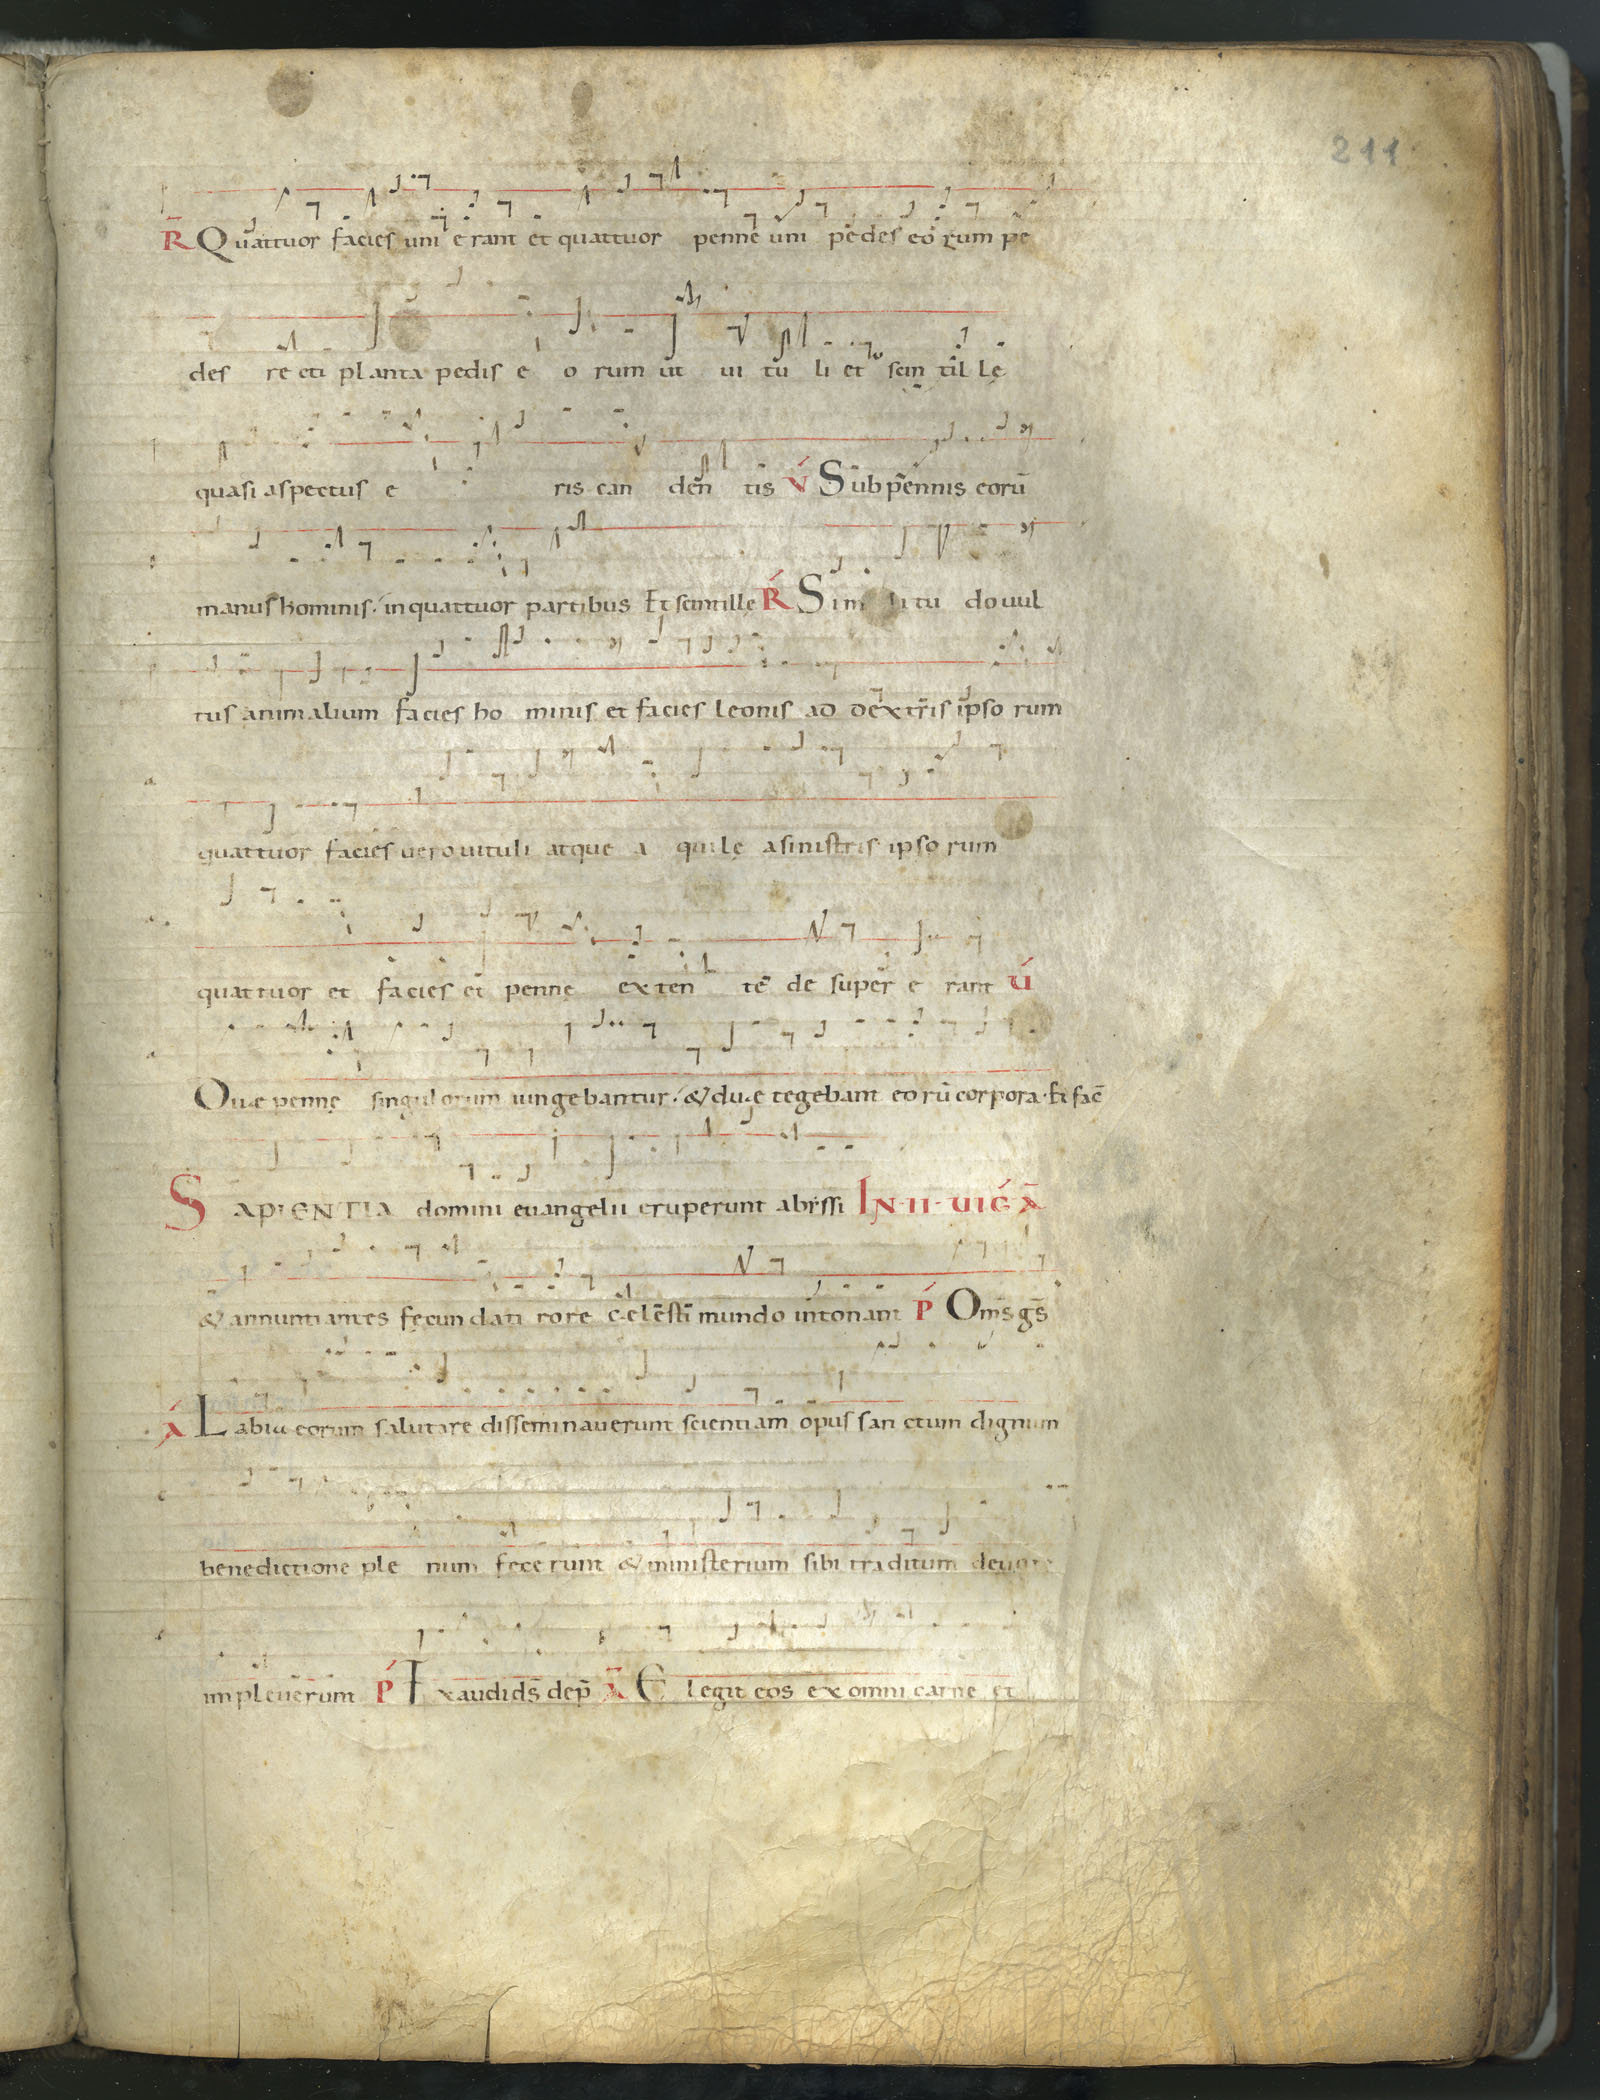 211
R̄ Quattuor facies uni erant et quattuor penne uni pedes eorum pe
des recti planta pedis eorum ut uituli et scintillę
quasi aspectus eris candentis V́ Sub pennis eorū
manus hominis. in quattuor partibus Et scintillę Ŕ Similitudo uul
tus animalium facies hominis et facies leonis ad dextris ipsorum
quattuor facies uero uituli atque aquilę a sinistris ipsorum
quattuor et facies et pennę extente de super erant V́
Due pennę singulorum iungebantur. & duæ tegebant eorū corpora. Et fac̄
SAPIENTIA domini euangelii eruperunt abyssi IN II UIǴ Ā
& annuntiantes fecundati rore cęlesti mundo intonant Ṕ Om̄s gs̄
Á Labia eorum salutare disseminauerunt scientiam opus sanctum dignum
benedictione plenum fecerunt & ministerium sibi traditum deuote
impleuerunt Ṕ Exaudi ds̄ dep̄ Ā Elegit eos ex omni carne et